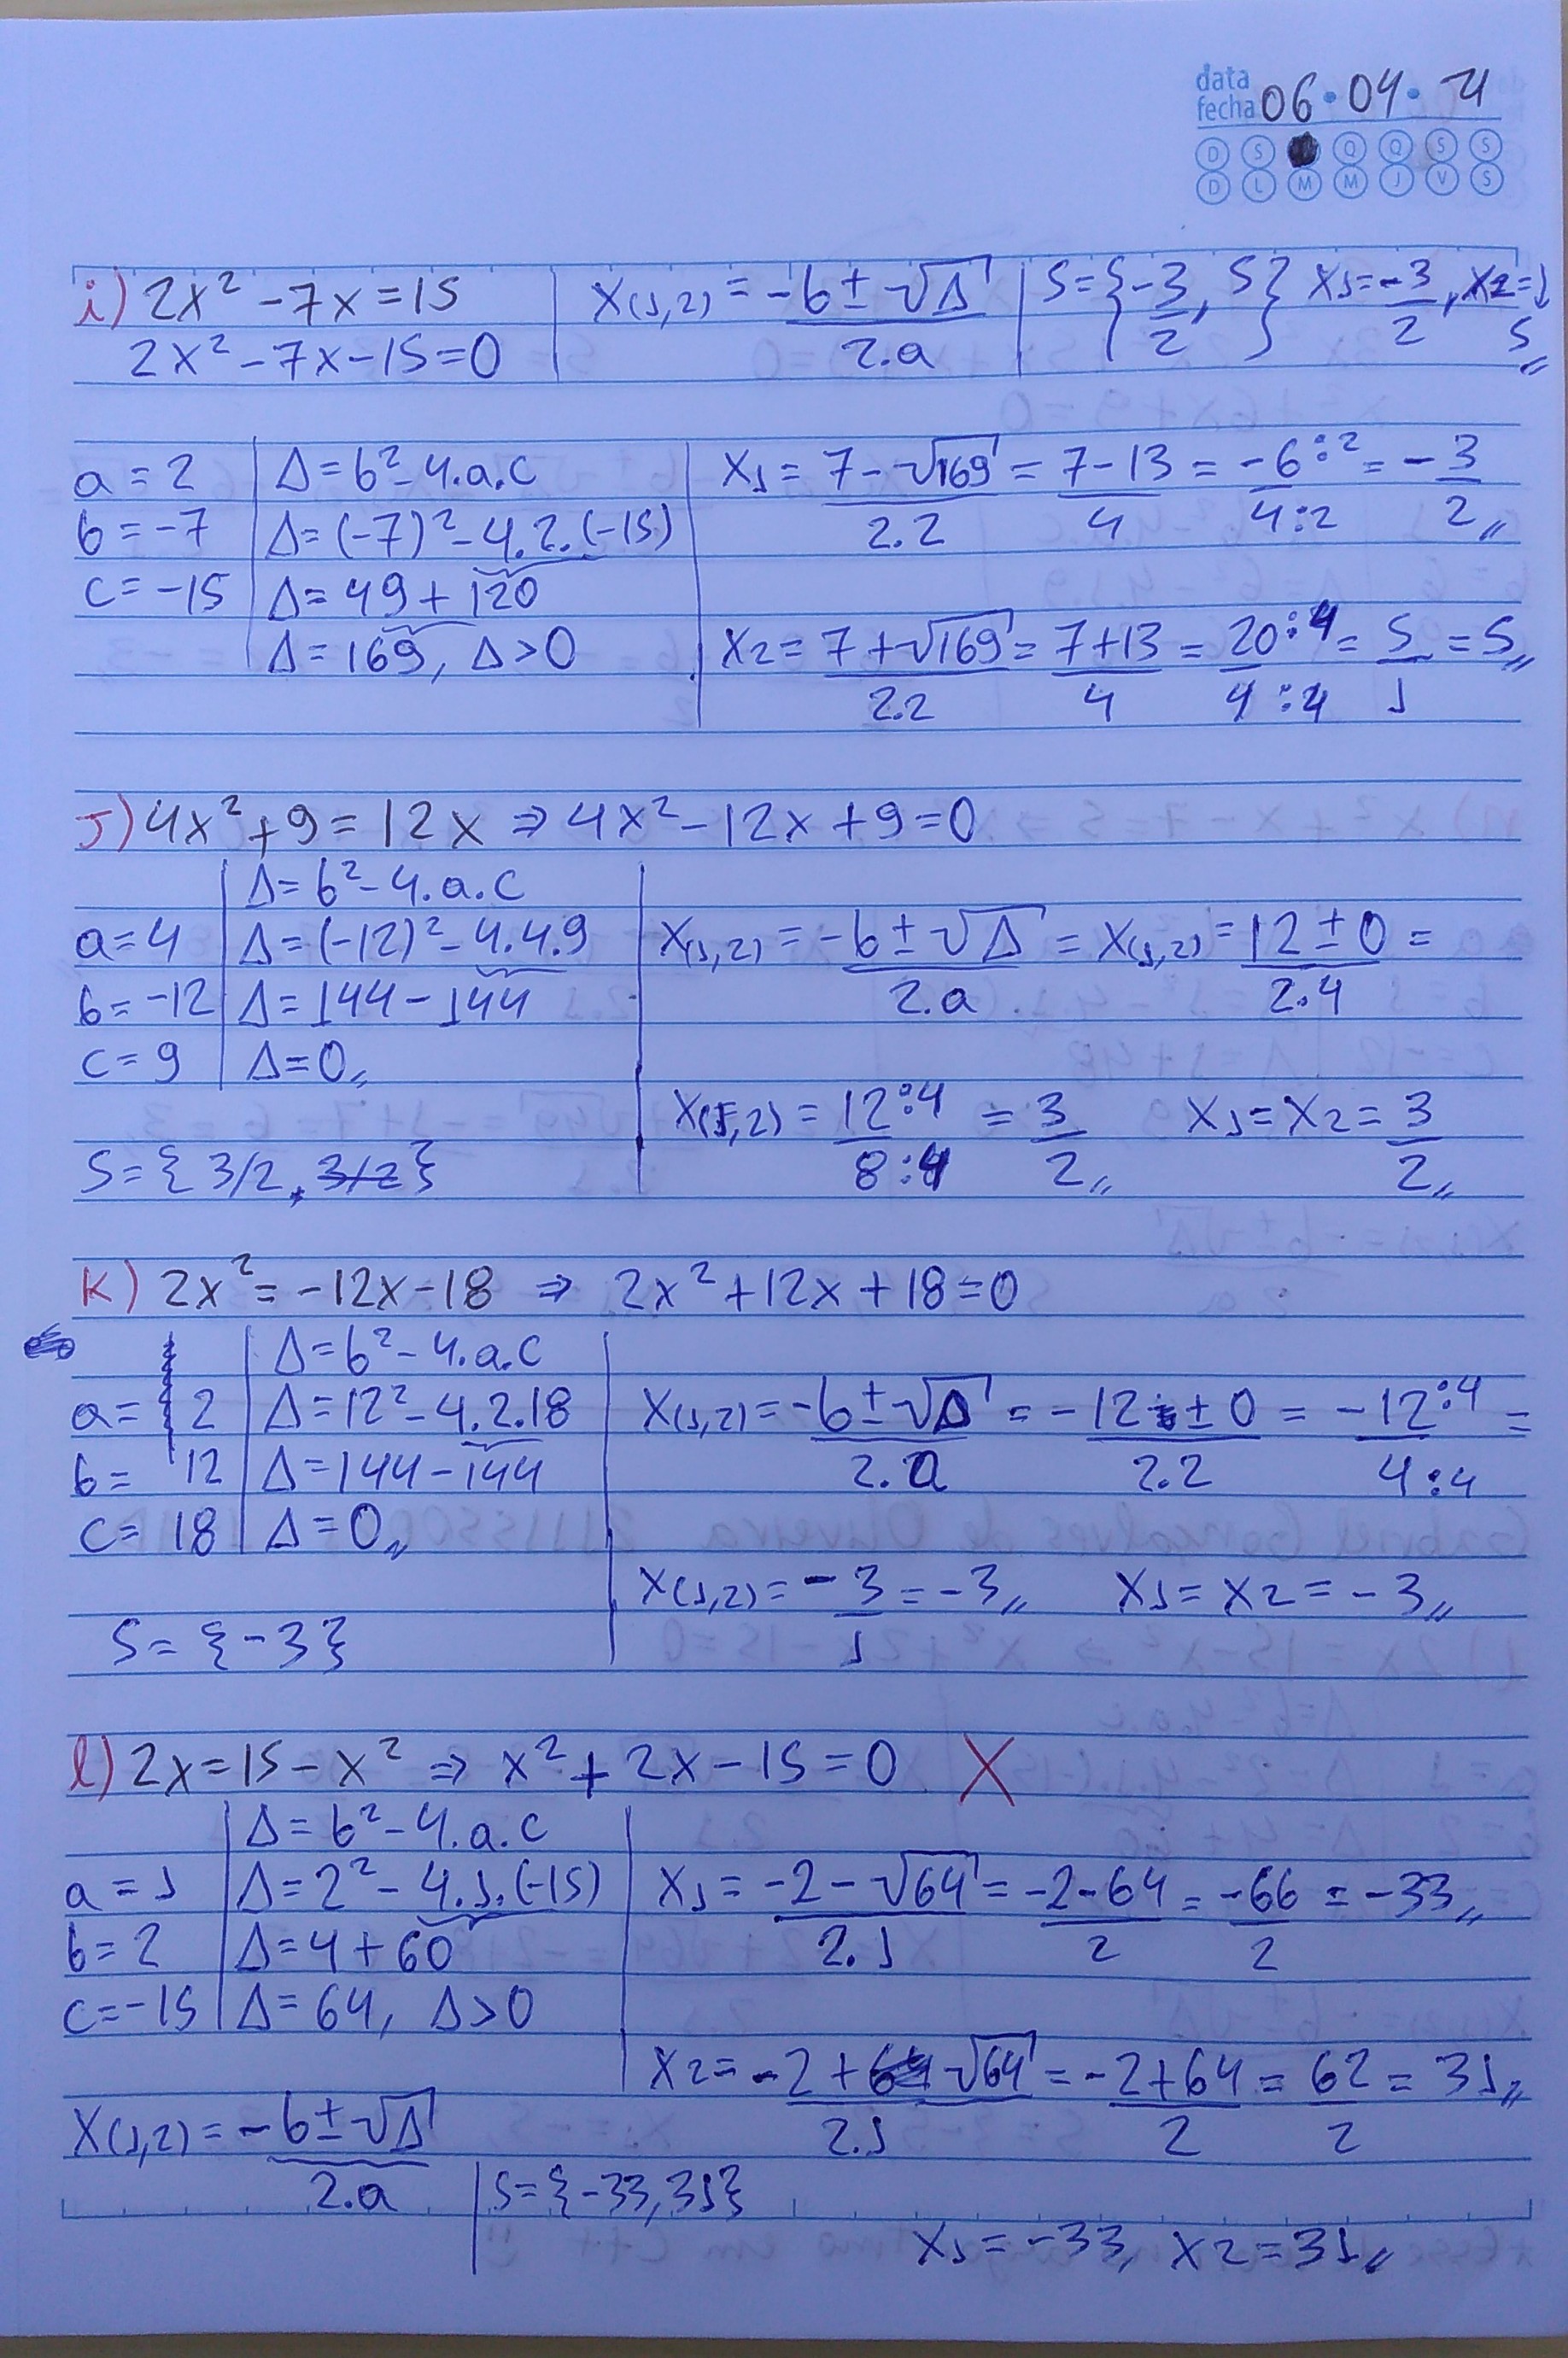 data
fecha 06.04.21
D S Q Q S S
D L M M J V S
i) 2x² - 7x = 15
2x² - 7x - 15 = 0
X(1,2) = -b ± √Δ / 2.a
S = {-3/2, 5} X1 = -3/2, X2 = 5
a = 2
b = -7
c = -15
Δ = b² - 4.a.c
Δ = (-7)² - 4.2.(-15)
Δ = 49 + 120
Δ = 169, Δ > 0
X1 = 7 - √169 / 2.2 = 7 - 13 / 4 = -6:2 / 4:2 = -3/2
X2 = 7 + √169 / 2.2 = 7 + 13 / 4 = 20:4 / 4:4 = 5/1 = 5
J) 4x² + 9 = 12x ⇒ 4x² - 12x + 9 = 0
a = 4
b = -12
c = 9
Δ = b² - 4.a.c
Δ = (-12)² - 4.4.9
Δ = 144 - 144
Δ = 0
X(1,2) = -b ± √Δ / 2.a = X(1,2) = 12 ± 0 / 2.4 =
X(1,2) = 12:4 / 8:4 = 3/2 X1 = X2 = 3/2
S = {3/2, 3/2}
K) 2x² = -12x - 18 ⇒ 2x² + 12x + 18 = 0
a = 2
b = 12
c = 18
Δ = b² - 4.a.c
Δ = 12² - 4.2.18
Δ = 144 - 144
Δ = 0
X(1,2) = -b ± √Δ / 2.a = -12 ± 0 / 2.2 = -12:4 / 4:4 =
X(1,2) = -3/1 = -3 X1 = X2 = -3
S = {-3}
l) 2x = 15 - x² ⇒ x² + 2x - 15 = 0 X
a = 1
b = 2
c = -15
Δ = b² - 4.a.c
Δ = 2² - 4.1.(-15)
Δ = 4 + 60
Δ = 64, Δ > 0
X1 = -2 - √64 / 2.1 = -2 - 64 / 2 = -66 / 2 = -33
X2 = -2 + √64 / 2.1 = -2 + 64 / 2 = 62 / 2 = 31
X(1,2) = -b ± √Δ / 2.a
S = {-33, 31}
X1 = -33, X2 = 31